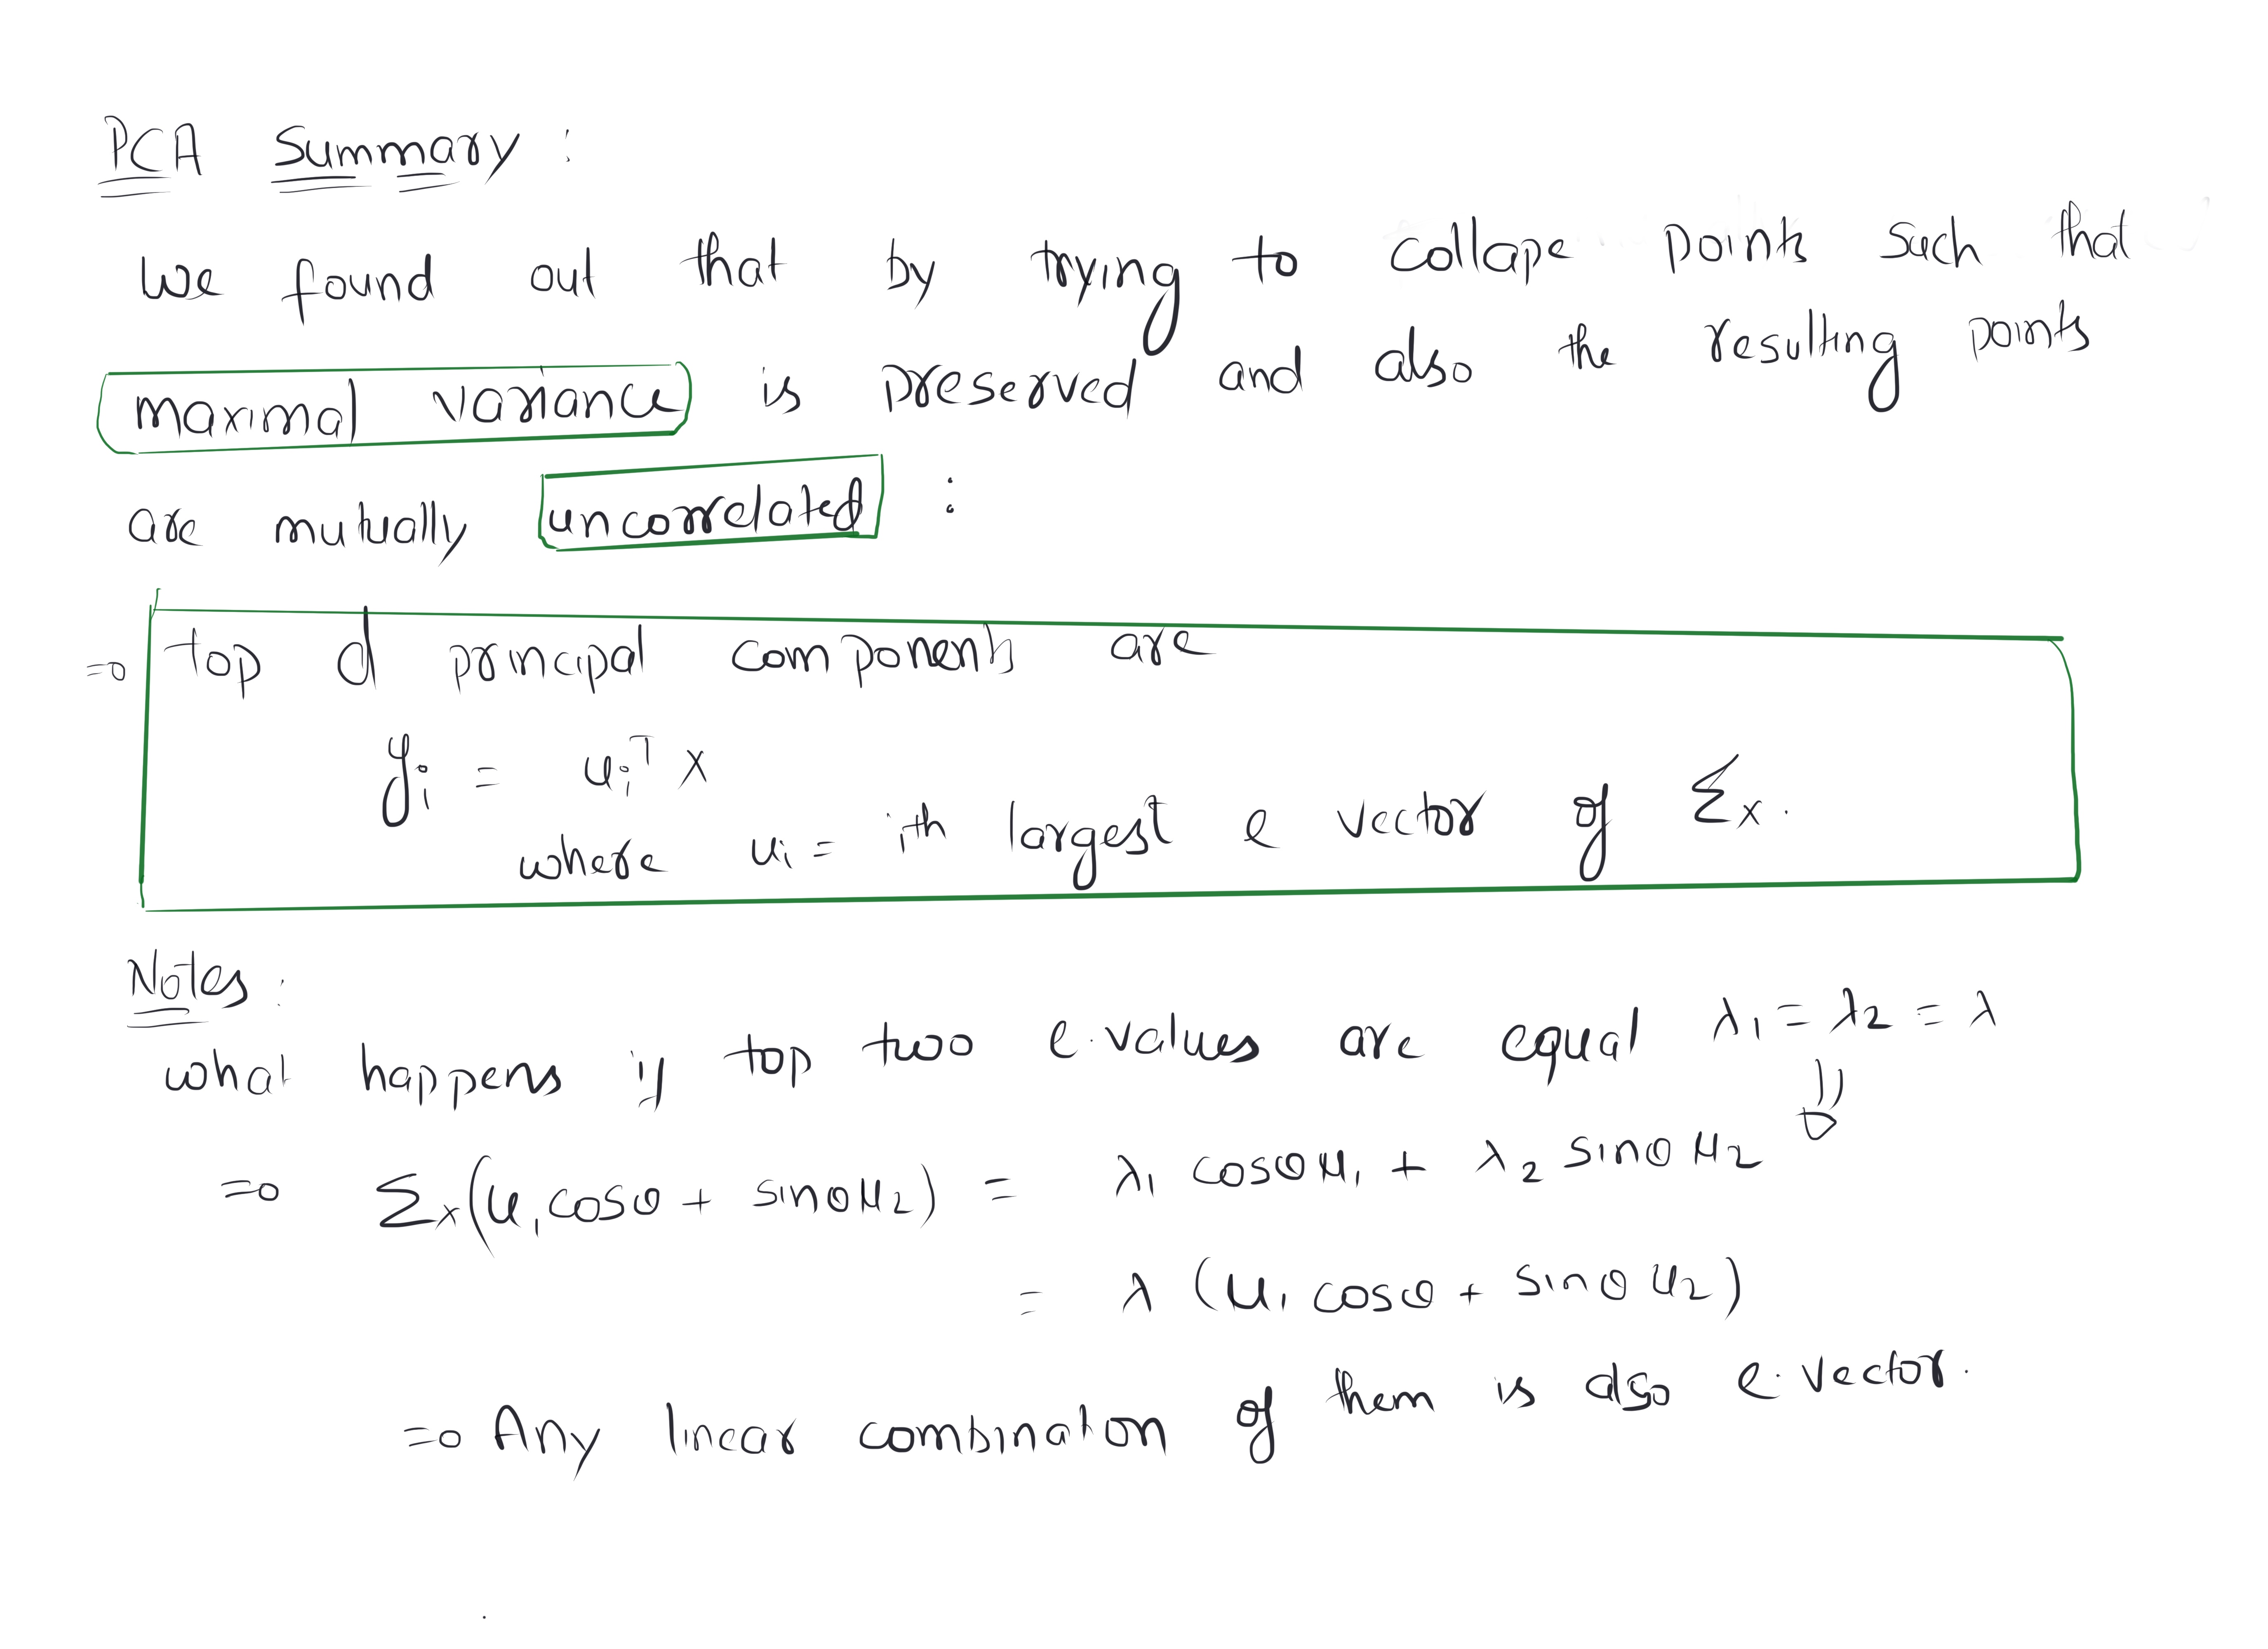 PCA Summary :
We found out that by trying to collape points such that
maximal variance is preserved and also the resulting points
are mutually uncorrelated :
⇒ top d principal components are
yᵢ = uᵢᵀ x
where uᵢ = ith largest e vector of Σx.
Notes :
what happens if top two e.values are equal λ₁ = λ₂ = λ
⇓
⇒ Σx(u₁cosθ + sinθu₂) = λ₁ cosθu₁ + λ₂ sinθu₂
= λ (u₁ cosθ + sinθu₂)
⇒ Any linear combination of them is also e.vector.